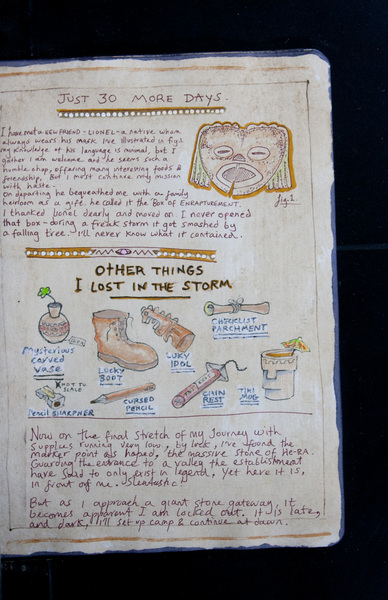 JUST 30 MORE DAYS.
I have met a NEW FRIEND - LIONEL - a native whom
always wears his mask I've illustrated in fig 2.
my knowledge of his language is minimal, but I
gather I am welcome and he seems such a
humble chap, offering many interesting foods &
friendship, But I must continue my mission
with haste.
On departing he bequeathed me with a family
heirloom as a gift. he called it the BOX OF ENRAPTUREMENT.
I thanked lionel dearly and moved on. I never opened
that box - during a freak storm it got smashed by
a falling tree. I'll never know what it contained.
fig 2.
OTHER THINGS
I LOST IN THE STORM
Mysterious
carved
vase
LUCKY
BOOT
LUKY
IDOL
CHECKLIST
PARCHMENT
NOT TO
SCALE
Pencil SHARPNER
CURSED
PENCIL
CHIN
REST
TIKI
MUG
Now on the final stretch of my Journey with
supplies running very low, by luck, I've found the
marker point as hoped, the massive stone of HE-RA.
Guarding the entrance to a valley the establishment
have said to only exist in legend, yet here it is,
in front of me.
But as I approach a giant stone gateway, it
becomes apparent I am locked out. it is late,
and dark, I'll set up camp & continue at dawn.